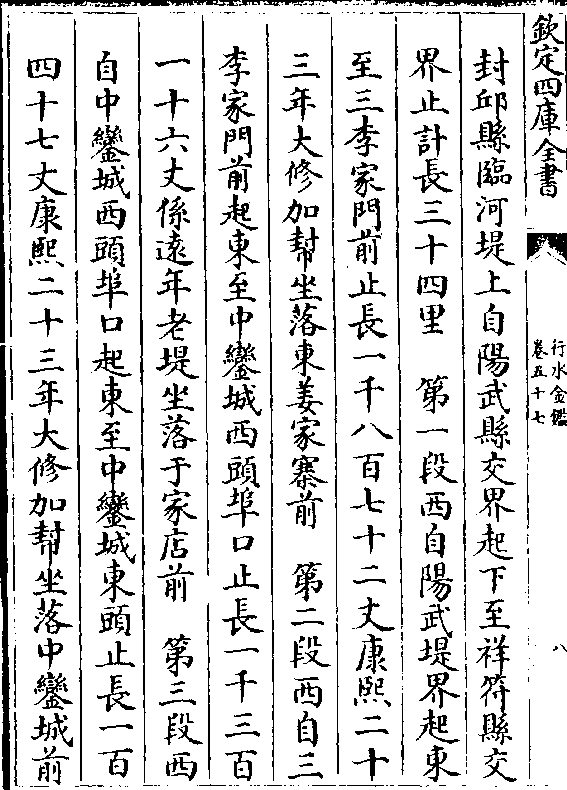 欽定四庫全書
行水金鑑
卷五十七
八
封邱縣臨河堤上自陽武縣交界起下至祥符縣交
界止計長三十四里　第一段西自陽武堤界起東
至三李家門前止長一千八百七十二丈康熙二十
三年大修加幫坐落東姜家寨前　第二段西自三
李家門前起東至中鑾城西頭埠口止長一千三百
一十六丈係遠年老堤坐落于家店前　第三段西
自中鑾城西頭埠口起東至中鑾城東頭止長一百
四十七丈康熙二十三年大修加幫坐落中鑾城前